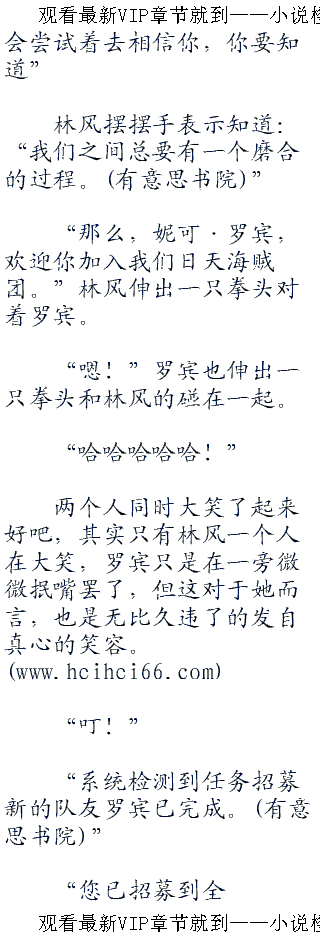 观看最新VIP章节就到——小说检
会尝试着去相信你，你要知
道”
林风摆摆手表示知道：
“我们之间总要有一个磨合
的过程。(有意思书院)”
“那么，妮可·罗宾，
欢迎你加入我们日天海贼
团。”林风伸出一只拳头对
着罗宾。
“嗯！”罗宾也伸出一
只拳头和林风的碰在一起。
“哈哈哈哈哈！”
两个人同时大笑了起来
好吧，其实只有林风一个人
在大笑，罗宾只是在一旁微
微抿嘴罢了，但这对于她而
言，也是无比久违了的发自
真心的笑容。
(www.hcihci66.com)
“叮！”
“系统检测到任务招募
新的队友罗宾已完成。(有意
思书院)”
“您已招募到全
观看最新VIP章节就到——小说检